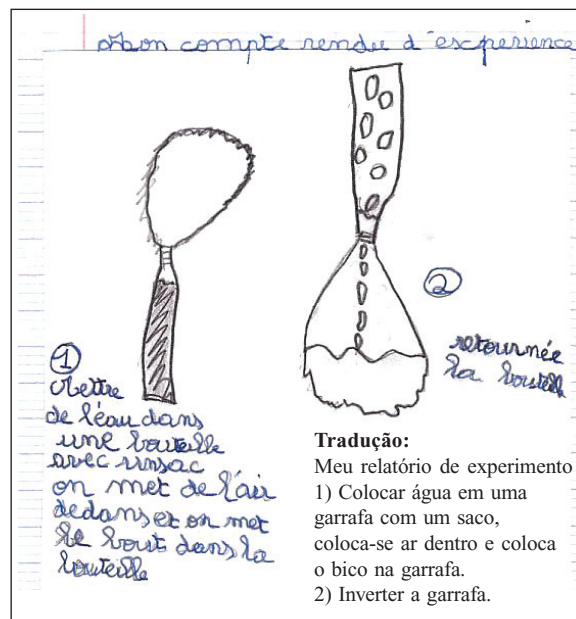 Mon compte rendu d'experience
1
Mettre
de l'eau dans
une bouteille
avec un sac
on met de l'air
dedans et on met
le bout dans la
bouteille
2
retournée
la bouteille
Tradução:
Meu relatório de experimento
1) Colocar água em uma
garrafa com um saco,
coloca-se ar dentro e coloca
o bico na garrafa.
2) Inverter a garrafa.